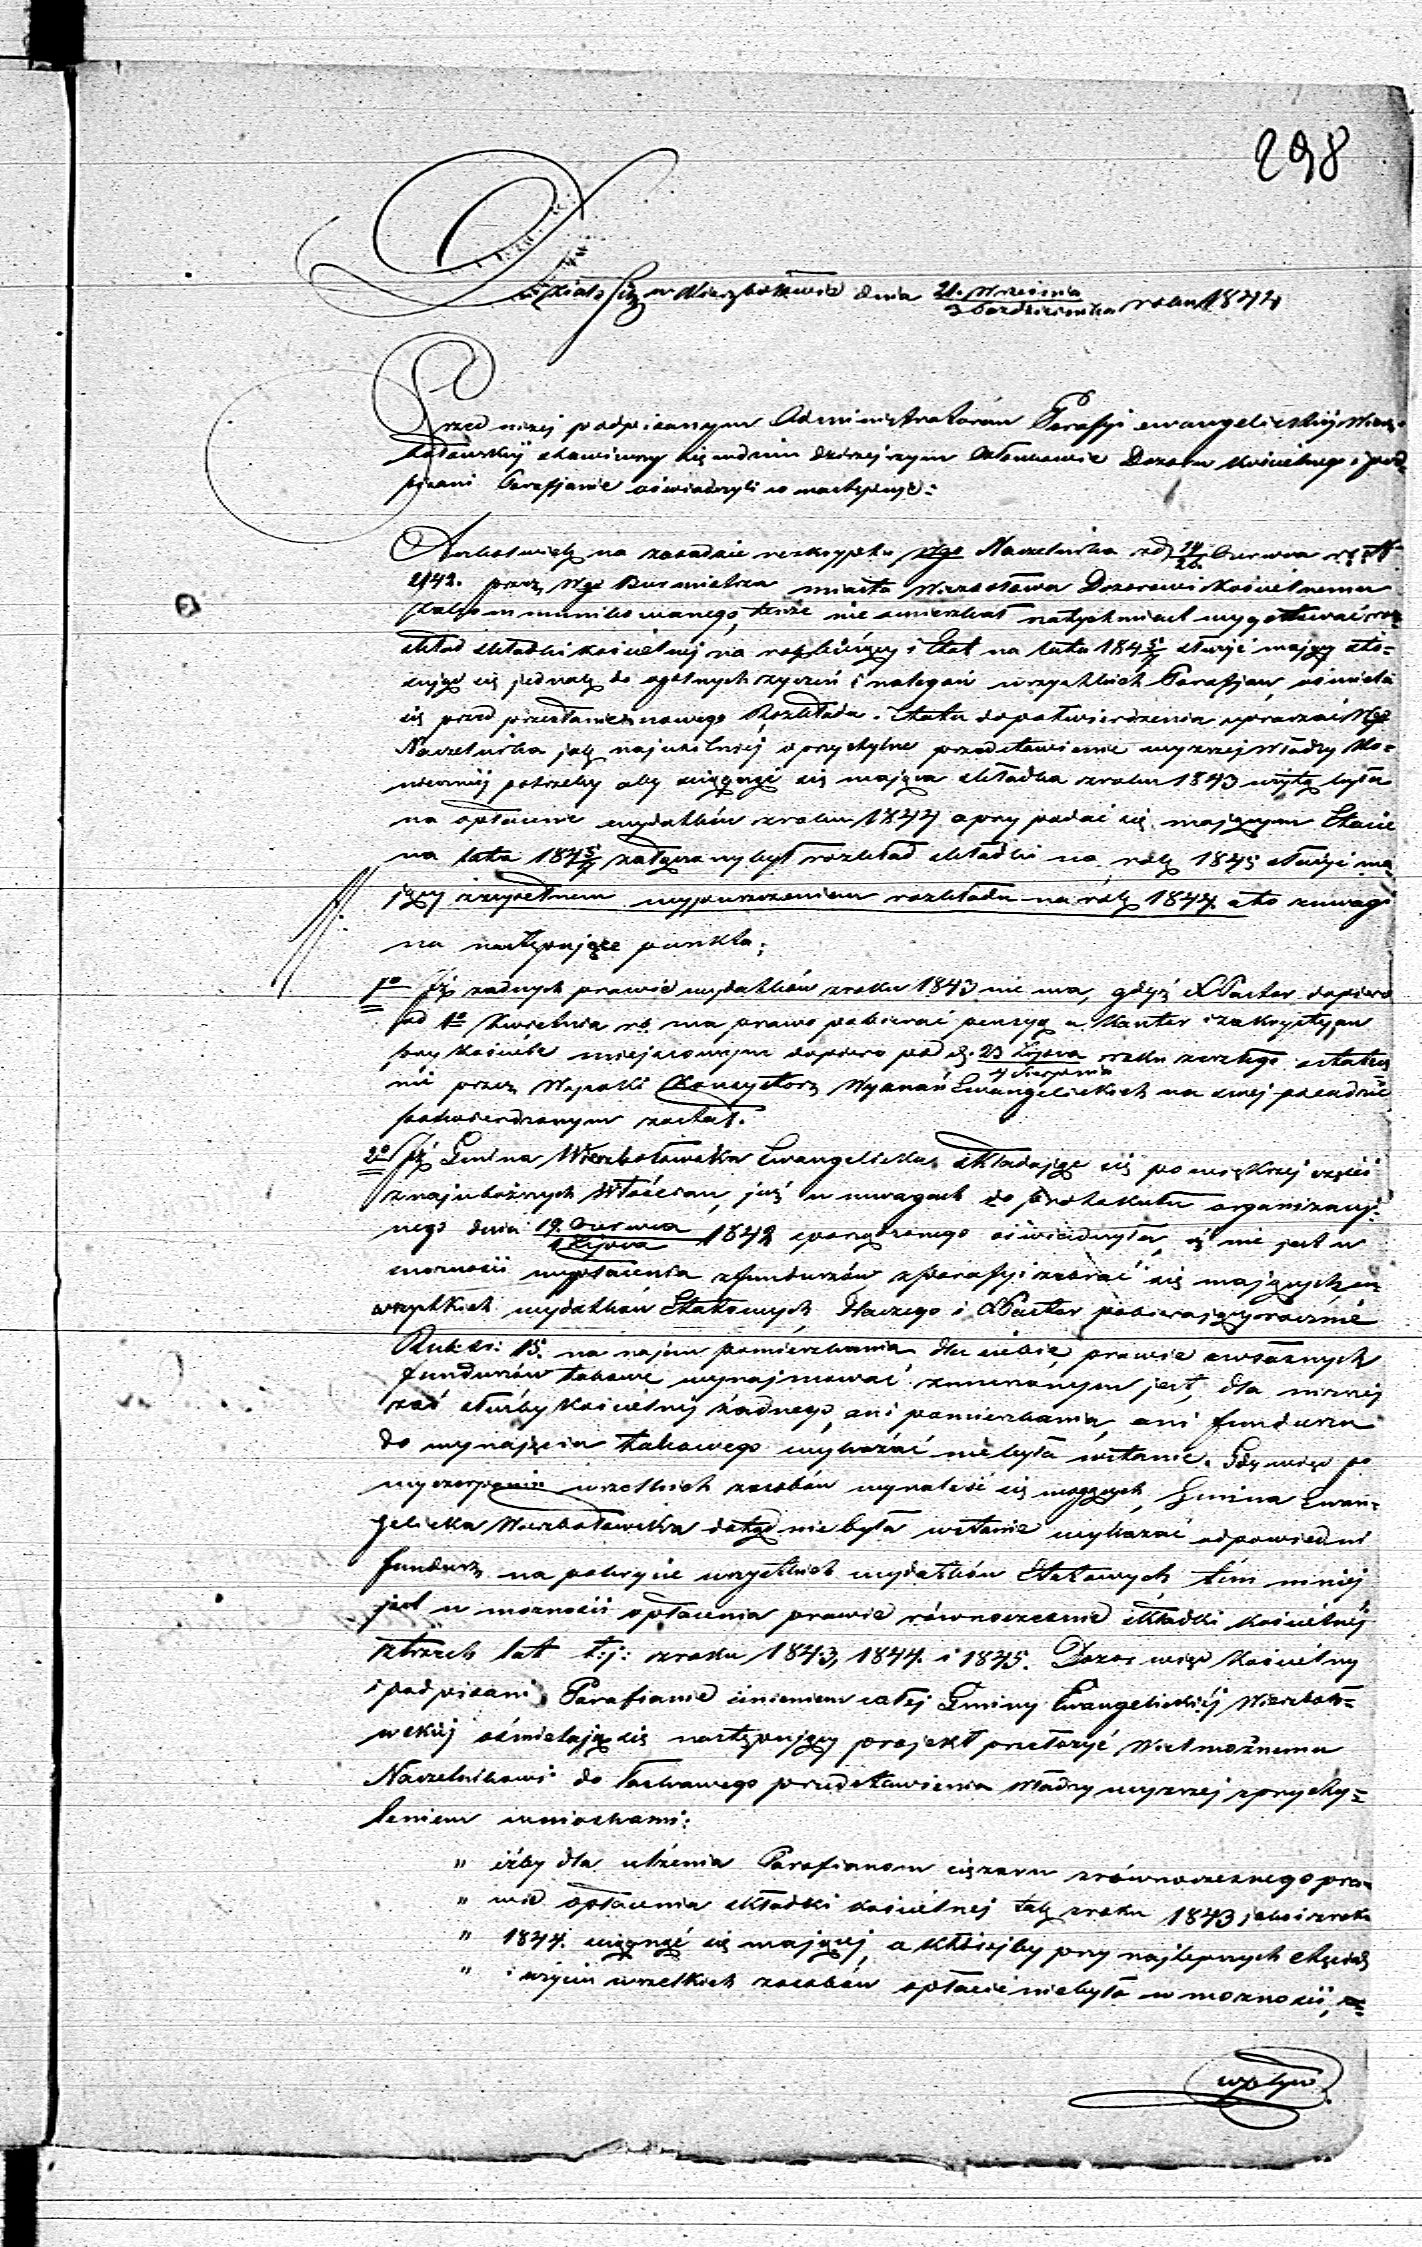 298
Działo się w Wierzbołowie dnia 21. Września / 3 Października roku 1844
Przed niżej podpisanym Administratorem Parafyi ewangelickiej Wierz-
bołowskiéj stawiwszy się w dniu dzisiejszym Członkowie Dozoru Kościelnego i pod-
pisani Parafianie oświadczyli co następuje:
Jakkolwiek na zasadzie reskryptu Wgo Naczelnika z d. 14/26 Czerwca r. b. N
2142. przez Wgo Burmistrza miasta Wierzbołowa Dozorowi Kościelnemu
zakommunikowanego, tenże nie omieszkał natychmiast wygotować roz-
kład składki kościelnéj na rok bieżący i Etat na lata 184 5/7 służyć mający sto-
sując się jednak do ogólnych życzeń i nalegań wszystkich Parafian, ośmiela
się przed przesłaniem nowego Rozkładu i Etatu do potwierdzenia upraszać Wgo
Naczelnika jak najusilniéj o przychylne przedstawienie wyższéj Władzy ko-
nieczniéj potrzeby aby ściągnąć się mająca składka z roku 1843 użytą była
na opłacenie wydatków z roku 1844 a przy podać się mającym Etacie
na lata 184 5/7 załączony był rozkład składki na rok 1845 służyć ma-
jący z zupełnem wypuszczeniem rozkładu na rok 1844. a to z uwagi
na następujące punkta:
1o Iż żadnych prawie wydatków z roku 1843 nie ma, gdyż X Pastor dopiero
od 1o Kwietnia r. b. ma prawo pobierać pensyą a Kantor i zakrystyan
przy kościele miejscowym dopiero pod d. 23 Lipca / 4 Sierpnia roku zeszłego ostatecz-
nie przez Wysoki Konsystorz Wyznań Ewangelickich na swej posadzie
potwierdzonym został.
2o Iż Gmina Wierzbołowska Ewangelicka składając się po większej części
z najuboższych Włościan, już w uwagach do protokułu organizacyj-
nego dnia 19. Czerwca / 1 Lipca 1842 sporządzonego oświadczyła, iż nie jest w
możności wypłacenia z funduszów z parafyi zebrać się mających
wszystkich wydatków Etatowych, dlaczego i X Pastor pobierający rocznie
Rub. sr: 15. na najem pomieszkania dla siebie, prawie z własnych
funduszów takowe wynajmować zmuszonym jest, dla niższej
zaś służby kościelnéj żadnego, ani pomieszkania, ani funduszu
do wynajęcia takowego wykazać nie była wstanie. Gdy więc po
wyczerpaniu wszelkich zasobów wynaleść się mogących, Gmina Ewan-
gelicka Wierzbołowska dotąd nie była wstanie wykazać odpowiedni
fundusz na pokrycie wszystkich wydatków Etatowych tém mniéj
jest w możności opłacenia prawie równocześnie składki kościelnéj
z trzech lat t: j: z roku 1843, 1844. i 1845. Dozór więc Kościelny
i podpisani Parafianie imieniem całéj Gminy Ewangelickiéj Wierzboło-
wskiéj ośmielają się następujący projekt przełożyć Wielmożnemu
Naczelnikowi do łaskawego przedstawienia Władzy wyższej z przychy-
leniem wnioskami:
" iżby dla ulżenia Parafianom ciężaru z równoczesnego pra-
" wie opłacenia składki kościelnej tak z roku 1843, jako i z roku
" 1844. ściągnąć się mającéj, a któréjby przy najlepszych chęciach
" i użyciu wszelkich zasobów opłacić nie była w możności,
wpływ